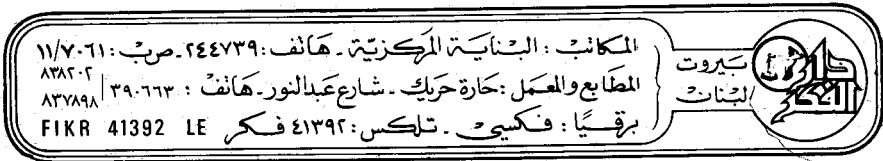 دار الفكر
بيروت
لبنان
المكاتب : البناية المركزية - هاتف : ٢٤٤٧٣٩ - ص ب : ١١/٧٠٦١
المطابع والمعمل : حارة حريك - شارع عبد النور - هاتف : ٣٩٠٦٦٣ ٨٣٨٢٠٢ ٨٣٧٨٩٨
برقيًا : فكسي - تلكس : ٤١٣٩٢ فكر FIKR 41392 LE